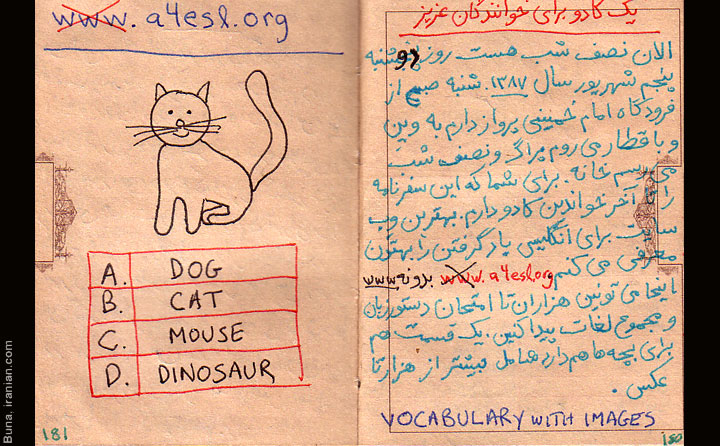 یک کادو برای خوانندگان عزیز
الان نصف شب هست روز دو شنبه
پنجم شهریور سال ۱۳۸۷. شنبه صبح از
فرودگاه امام خمینی پرواز دارم به وین
و با قطار می روم پراگ و نصف شب
می رسم خانه. برای شما که این سفرنامه
را تا آخر خواندین کادو دارم. بهترین وب
سایت برای انگلیسی یاد گرفتن را بهتون
معرفی می کنم www.a4esl.org بدونه www
اینجا می تونین هزاران تا امتحان دستور زبان
و مجموع لغات پیدا کنین. یک قسمت هم
برای بچه ها هم دارد شامل بیشتر از هزار تا
عکس.
VOCABULARY WITH IMAGES
180
www.a4esl.org
A. DOG
B. CAT
C. MOUSE
D. DINOSAUR
181
Buna, iranian.com